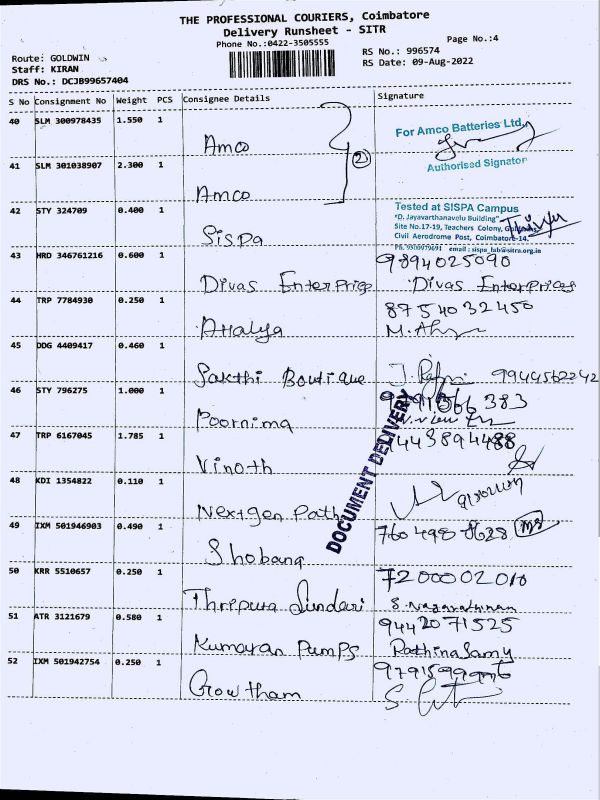 THE PROFESSIONAL COURIERS, Coimbatore
Delivery Runsheet - SITR
Phone No.:0422-3505555
Page No.:4
Route: GOLDWIN
RS No.: 996574
Staff: KIRAN
RS Date: 09-Aug-2022
DRS No.: DCJB99657404
S No Consignment No Weight PCS Consignee Details Signature
40 SLM 300978435 1.550 1
Amco
2
For Amco Batteries Ltd.,
Authorised Signator
41 SLM 301038907 2.300 1
Amco
42 STY 324709 0.400 1
Sispa
Tested at SISPA Campus
"D. Jayavarthanavelu Building"
Site No.17-19, Teachers Colony, Goldwins,
Civil Aerodrome Post, Coimbatore-14.
email : sispa_lab@sitra.org.in
43 HRD 346761216 0.600 1
9894025090
Divas Enterprise Divas Enterprises
44 TRP 7784930 0.250 1
8754032450
Athalya
45 DDG 4409417 0.460 1
Sakthi Boutique 9944562242
46 STY 796275 1.000 1
Poornima
47 TRP 6167045 1.785 1
Vinoth
DOCUMENT DELIVERY
48 KDI 1354822 0.110 1
Nextgen Path
49 IXM 501946903 0.490 1
Shobana
50 KRR 5510657 0.250 1
7200002010
Thripura Sundari
51 ATR 3121679 0.580 1
9442071525
Kumaran Pumps Rathinasamy
52 IXM 501942754 0.250 1
Gowtham